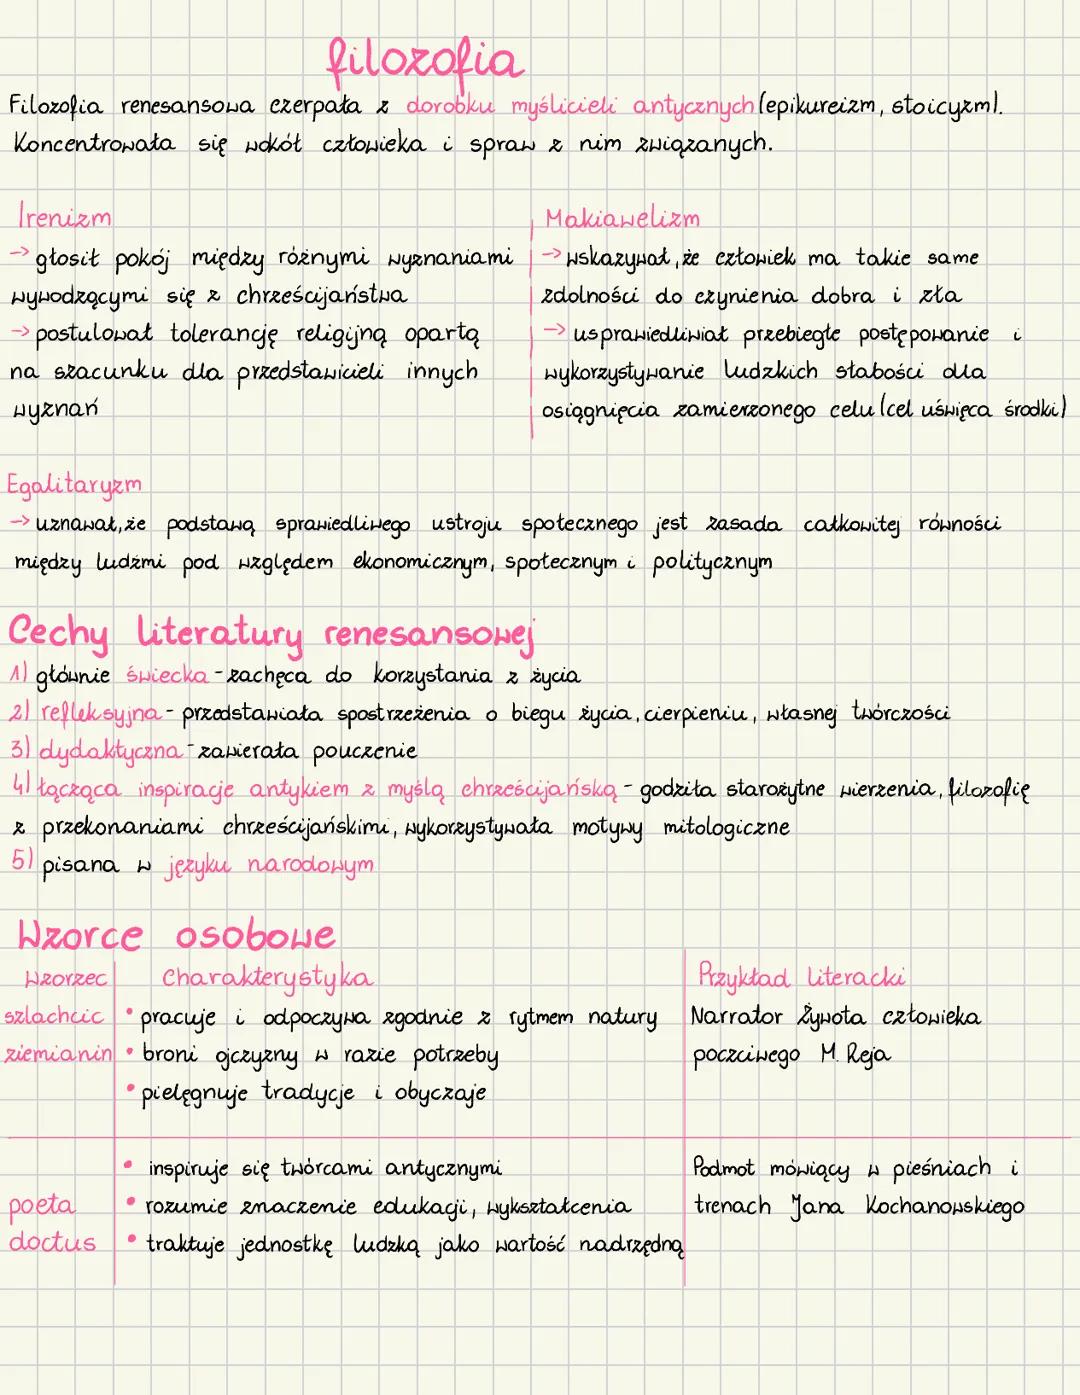 filozofia
Filozofia renesansowa czerpała z dorobku myślicieli antycznych (epikureizm, stoicyzm).
Koncentrowała się wokół człowieka i spraw z nim związanych.
Irenizm
→ głosił pokój między różnymi wyznaniami
wywodzącymi się z chrześcijaństwa
→ postulował tolerancję religijną opartą
na szacunku dla przedstawicieli innych
wyznań
Makiawelizm
→ wskazywał, że człowiek ma takie same
zdolności do czynienia dobra i zła
→ usprawiedliwiał przebiegłe postępowanie i
wykorzystywanie ludzkich słabości dla
osiągnięcia zamierzonego celu (cel uświęca środki)
Egalitaryzm
→ uznawał, że podstawą sprawiedliwego ustroju społecznego jest zasada całkowitej równości
między ludźmi pod względem ekonomicznym, społecznym i politycznym
Cechy literatury renesansowej
1) głównie świecka - zachęca do korzystania z życia
2) refleksyjna - przedstawiała spostrzeżenia o biegu życia, cierpieniu, własnej twórczości
3) dydaktyczna - zawierała pouczenie
4) łącząca inspiracje antykiem z myślą chrześcijańską - godziła starożytne wierzenia, filozofię
z przekonaniami chrześcijańskimi, wykorzystywała motywy mitologiczne
5) pisana w języku narodowym
Wzorce osobowe
Wzorzec Charakterystyka Przykład literacki
szlachcic • pracuje i odpoczywa zgodnie z rytmem natury Narrator Żywota człowieka
ziemianin • broni ojczyzny w razie potrzeby poczciwego M. Reja
• pielęgnuje tradycje i obyczaje
• inspiruje się twórcami antycznymi Podmot mówiący w pieśniach i
poeta • rozumie znaczenie edukacji, wykształcenia trenach Jana Kochanowskiego
doctus • traktuje jednostkę ludzką jako wartość nadrzędną